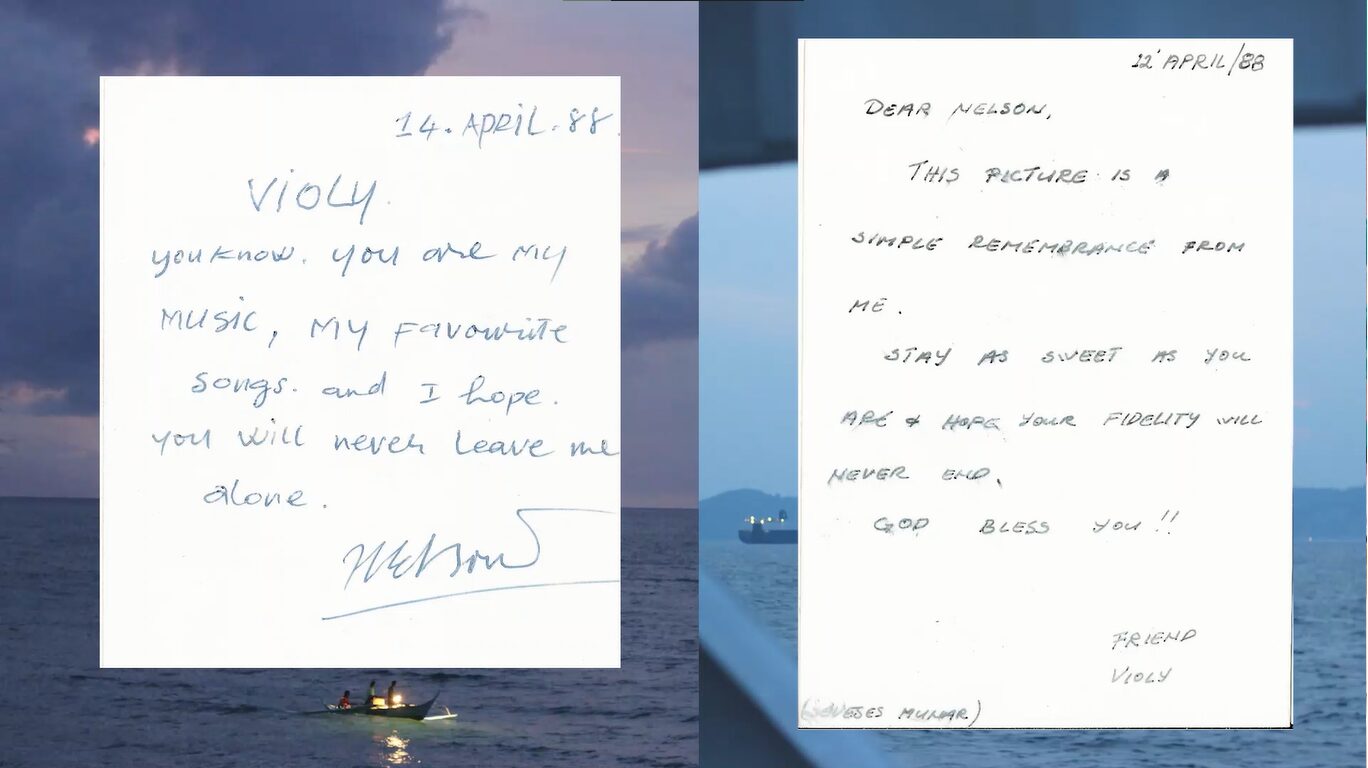 14. APRIL. 88.
VIOLY.
you know. you are MY
MUSIC, MY Favourite
songs. and I hope.
you will never leave me
alone.
Nelson
12' APRIL/88
DEAR NELSON,
THIS PICTURE IS A
SIMPLE REMEMBRANCE FROM
ME.
STAY AS SWEET AS YOU
ARE & HOPE YOUR FIDELITY WILL
NEVER END.
GOD BLESS YOU!!
FRIEND
VIOLY
MUNAR)